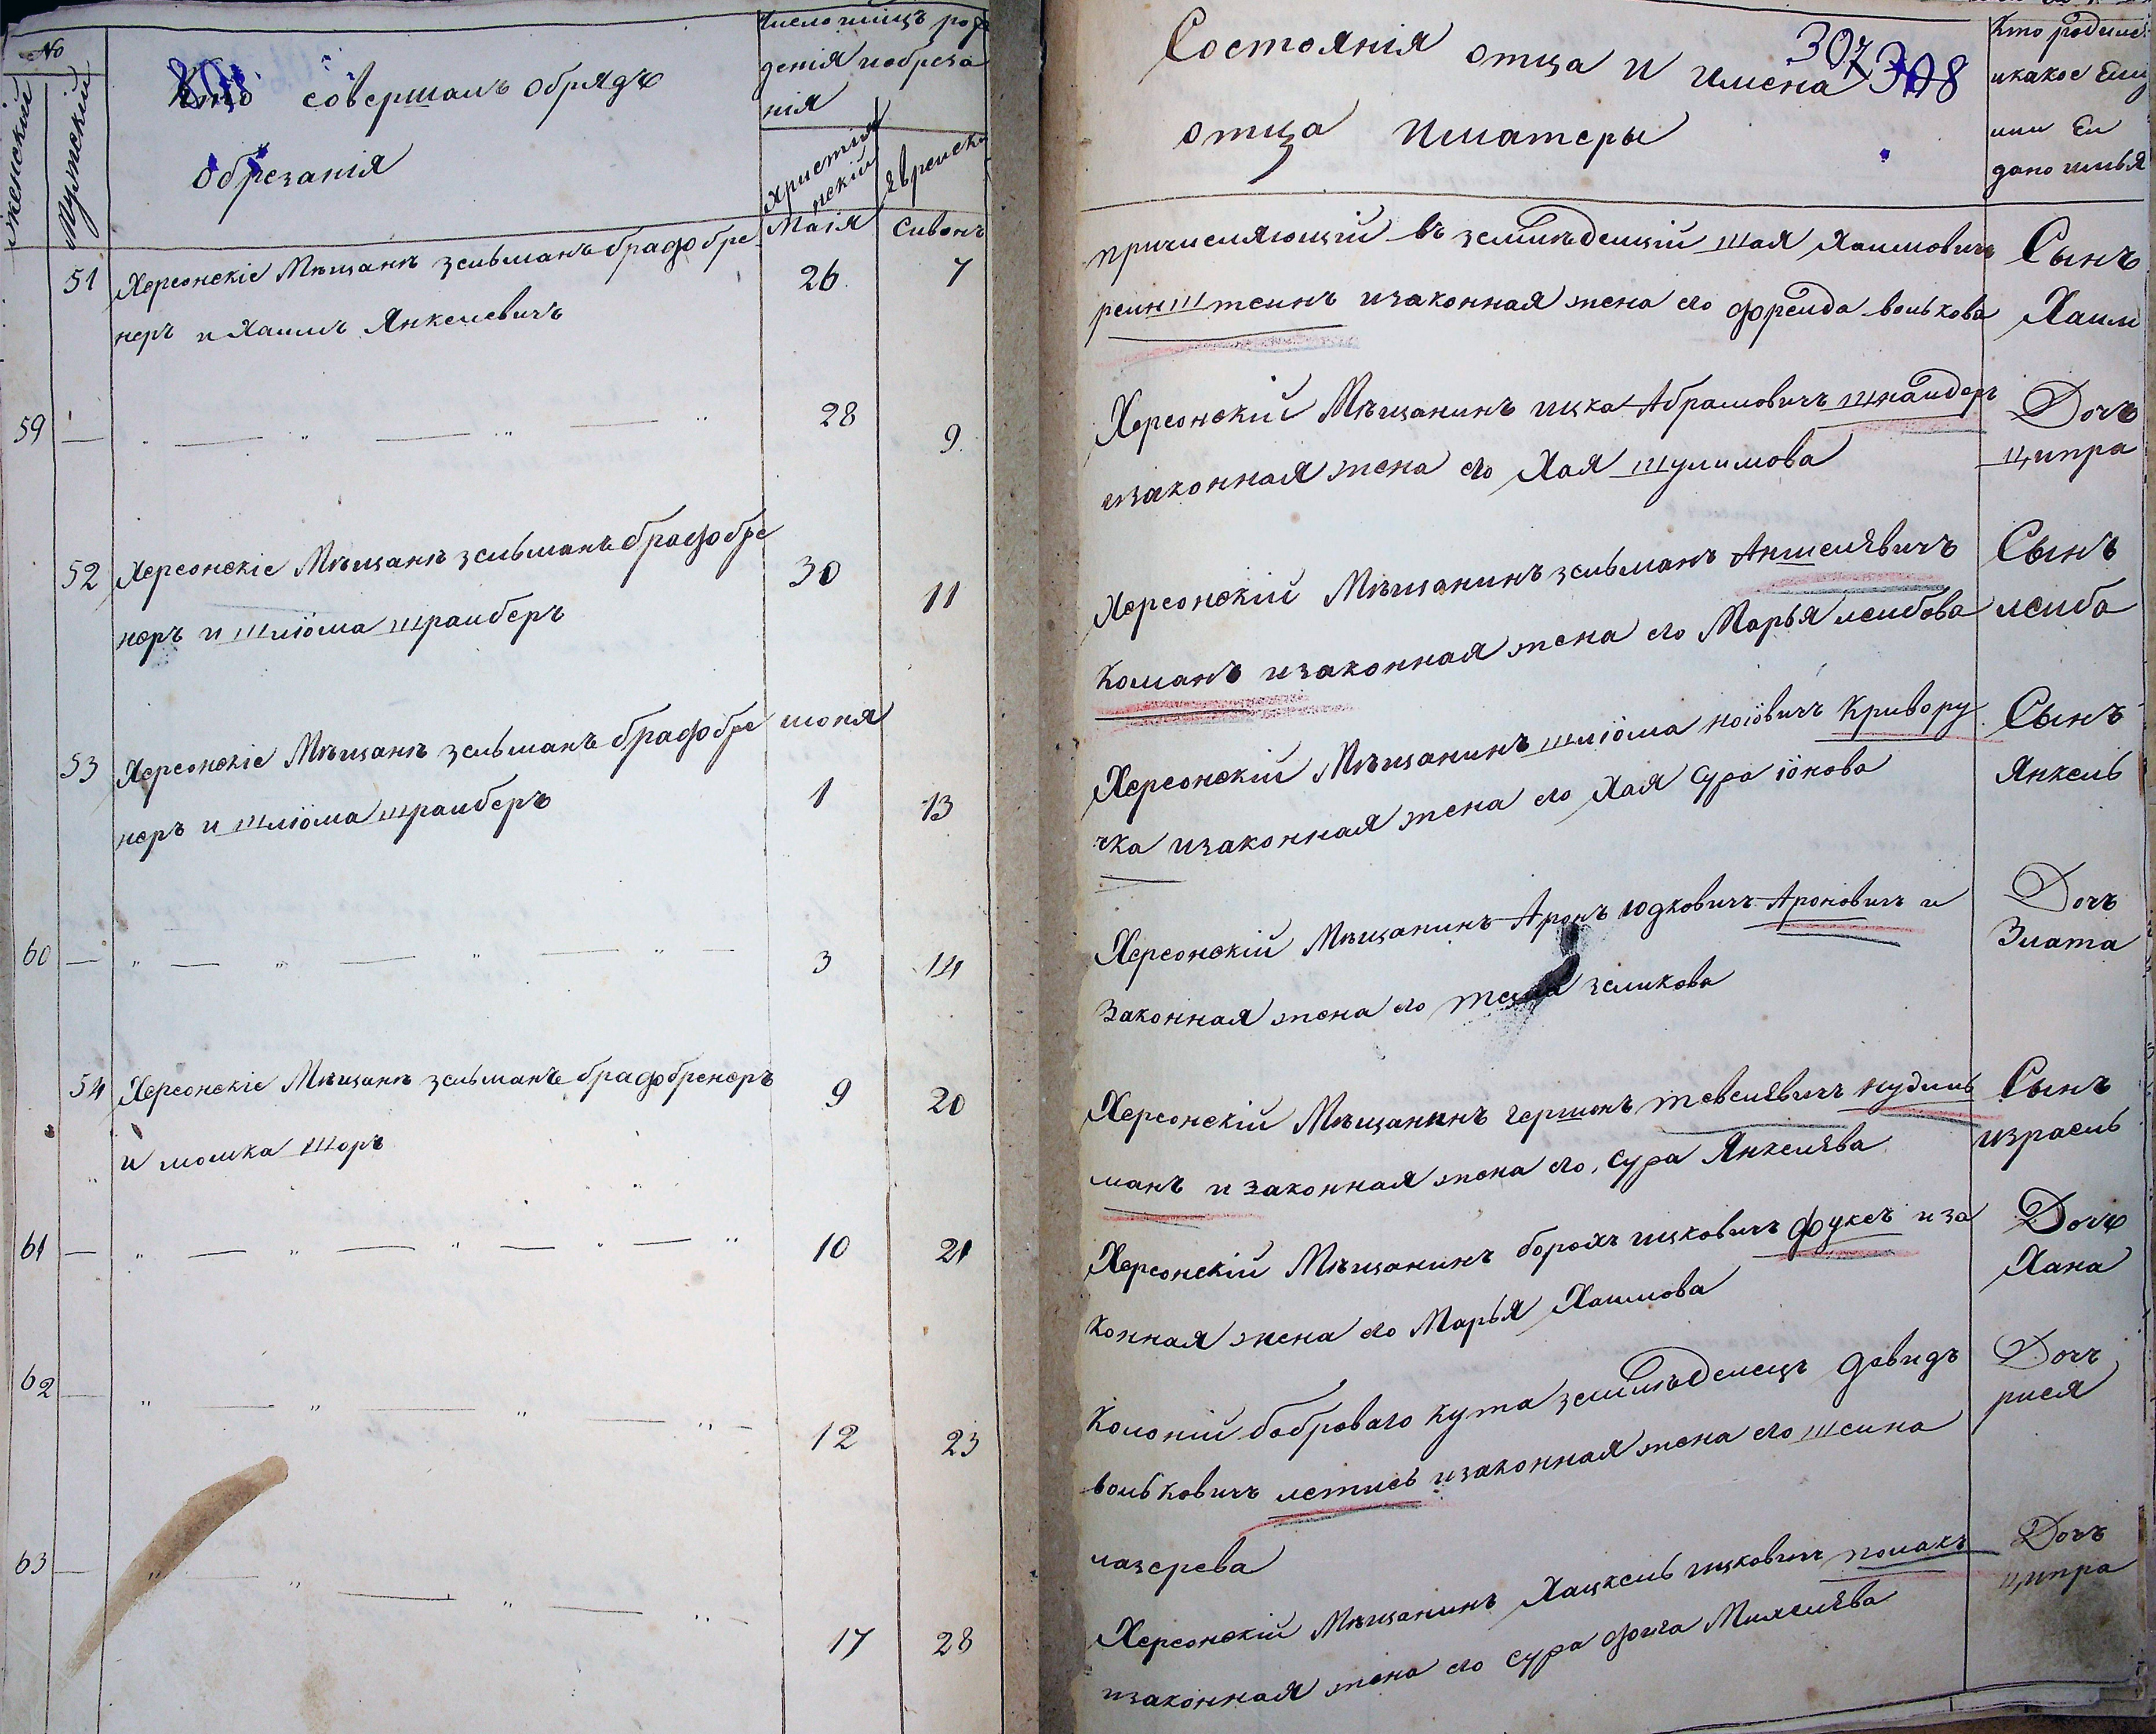 №
женский
Мужеский
Кто совершалъ обрядъ
обрезанія
Число мѣсцъ рож
денія иобреза
нія
Христія
нскій
Еврейски
Маія
Сивонъ
51
Херсонскіе Мѣщанѣ зельманъ брафобре
неръ и Хаимъ Янкелевичъ
26
7
59
28
9
52
Херсонскіе Мѣщанѣ зельманъ брафобре
неръ и шліома шрайберъ
30
11
53
Херсонскіе Мѣщанѣ зельманъ брафобре
неръ и шліома шрайберъ
июня
1
13
60
3
14
54
Херсонскіе Мѣщанѣ зельманъ брафобренеръ
и мошка шоръ
9
20
61
10
21
62
12
23
63
17
28
307 308
Состоянія отца и имена
отца иматеры
Кто родилс
икакое Ему
или Еи
дано имья
причисляющій въ земленъделцій шая Хаимовичъ
реинштеинъ изаконная жена его фреида волькова
Сынъ
Хаим
Херсонскій Мѣщанинъ ицка Абрамовичъ шнаидеръ
изаконная жена его Хая шулимова
Дочъ
ципра
Херсонскій Мѣщанинъ зельманъ Аншелевичъ
команъ изаконная жена его Марья леибова
Сынъ
леиба
Херсонскій Мѣщанинъ шліома ноіовичъ Кривору
чка изаконная жена его Хая сура іонова
Сынъ
Янкель
Херсонскій Мѣщанинъ Аронъ юдковичъ Ароновичъ и
Законная жена его зеликова
Дочъ
Злата
Херсонскій Мѣщанинъ гершонъ тевелевичъ нудель
манъ и законная жена его, сура Янкелева
Сынъ
израель
Херсонскій Мѣщанинъ борохъ ицковичъ фуксъ иза
конная жена его Марья Хаимова
Дочъ
Хана
Колоніи боброваго кута земленъделецъ давидъ
вольковичъ летись изаконная жена его шеина
лазерева
Дочъ
рися
Херсонскій Мѣщанинъ Хацкель ицковичъ полакъ
изаконная жена его сура фоига Михелева
Дочъ
ципра